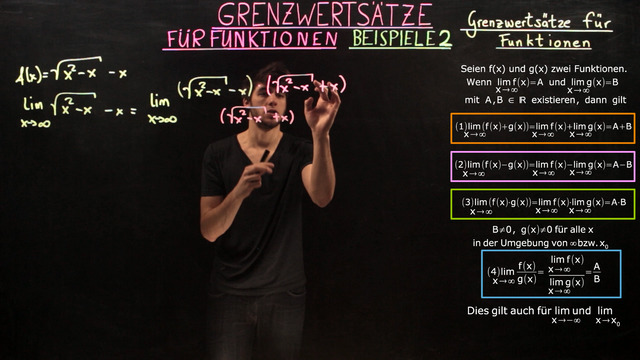 GRENZWERTSÄTZE
FÜR FUNKTIONEN BEISPIELE 2
f(x)=√x²-x -x
lim √x²-x -x = lim (√x²-x -x) (√x²-x +x)
x→∞ x→∞
(√x²-x +x)
Grenzwertsätze für
Funktionen
Seien f(x) und g(x) zwei Funktionen.
Wenn lim f(x)=A und lim g(x)=B
x→∞ x→∞
mit A,B ∈ ℝ existieren, dann gilt
(1) lim (f(x)+g(x))=lim f(x)+lim g(x)=A+B
x→∞ x→∞ x→∞
(2) lim (f(x)−g(x))=lim f(x)−lim g(x)=A−B
x→∞ x→∞ x→∞
(3) lim (f(x)·g(x))=lim f(x)·lim g(x)=A·B
x→∞ x→∞ x→∞
B≠0, g(x)≠0 für alle x
in der Umgebung von ∞ bzw. x₀
(4) lim f(x)/g(x) = lim f(x)/lim g(x) = A/B
x→∞ x→∞ x→∞
Dies gilt auch für lim und lim
x→−∞ x→x₀